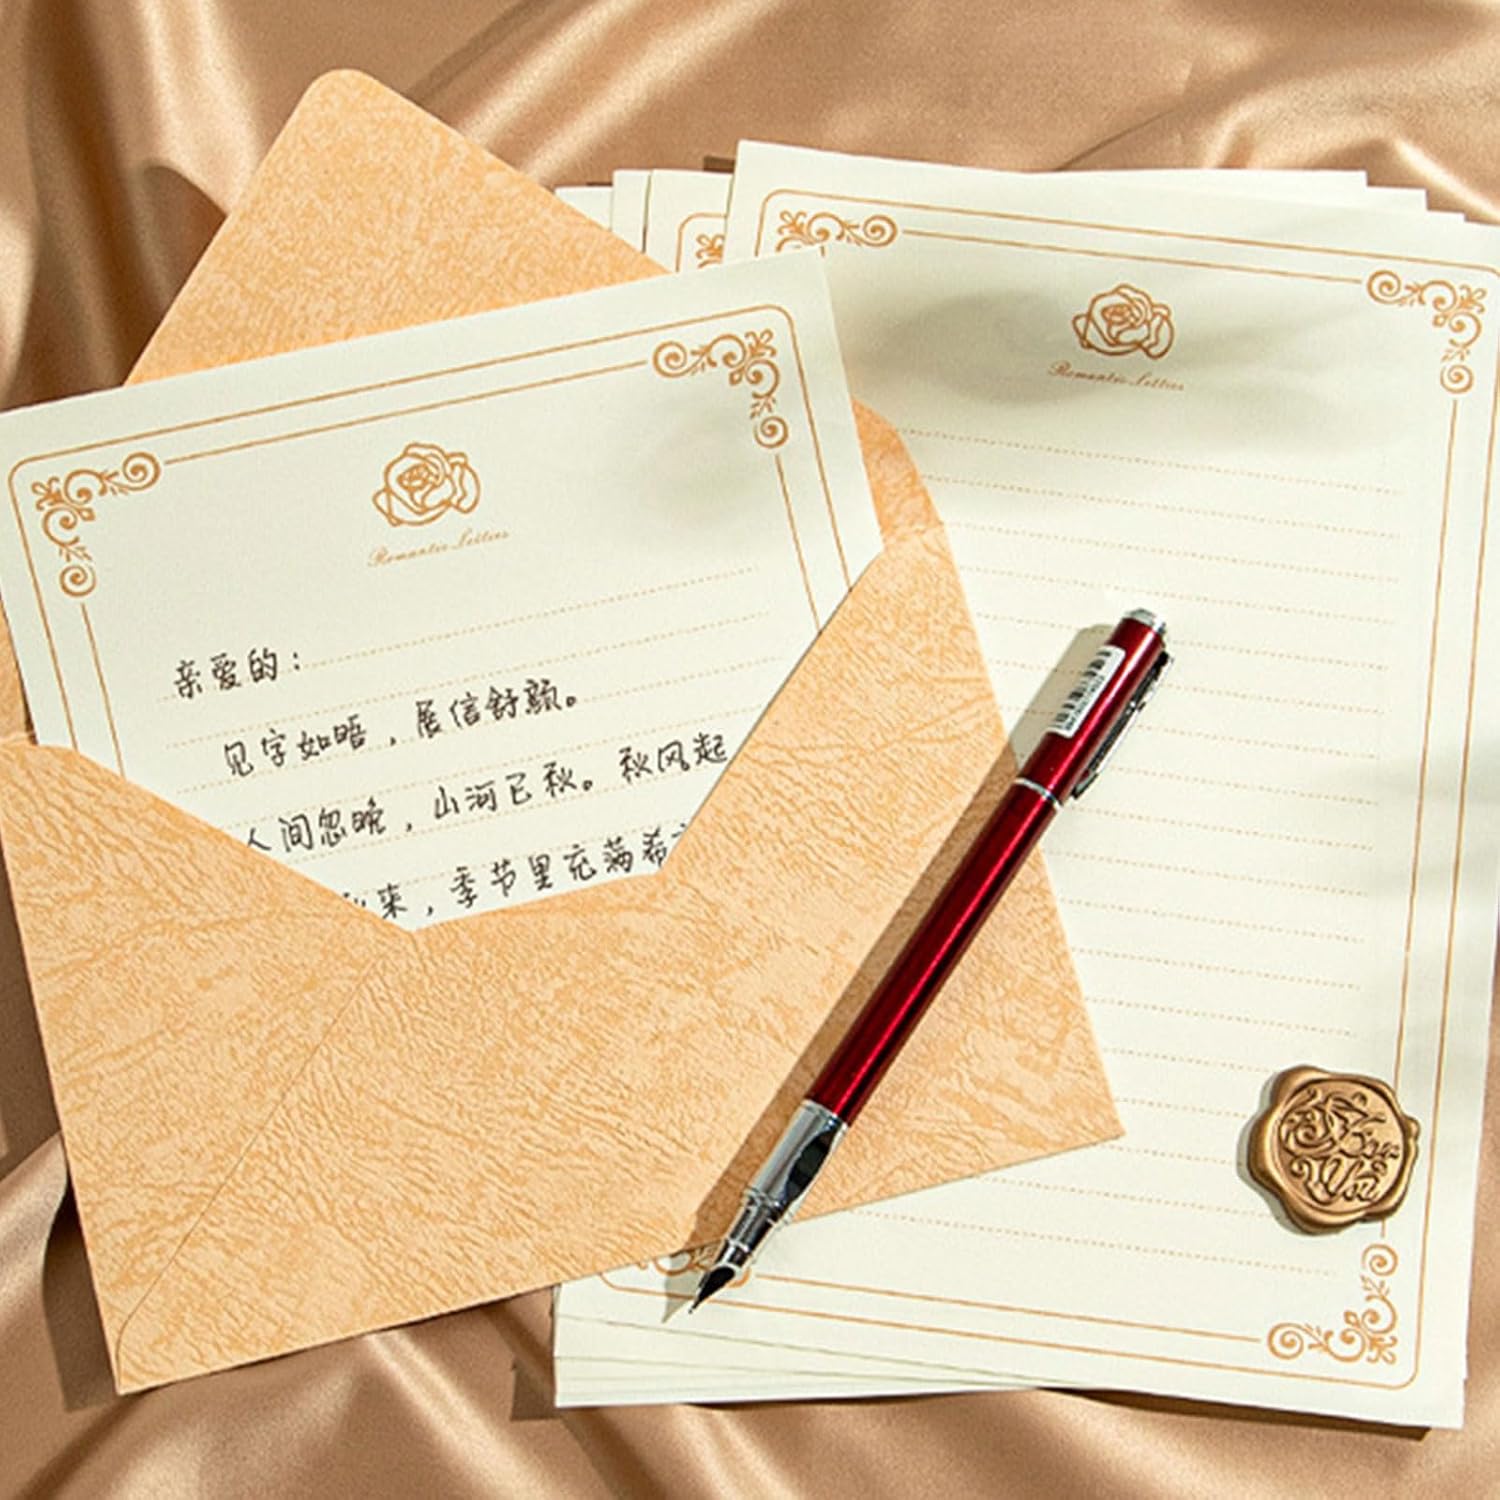 Romantic Letters
亲爱的：
见字如晤，展信舒颜。
人间忽晚，山河已秋。秋风起
来，季节里充满希
Romantic Letters